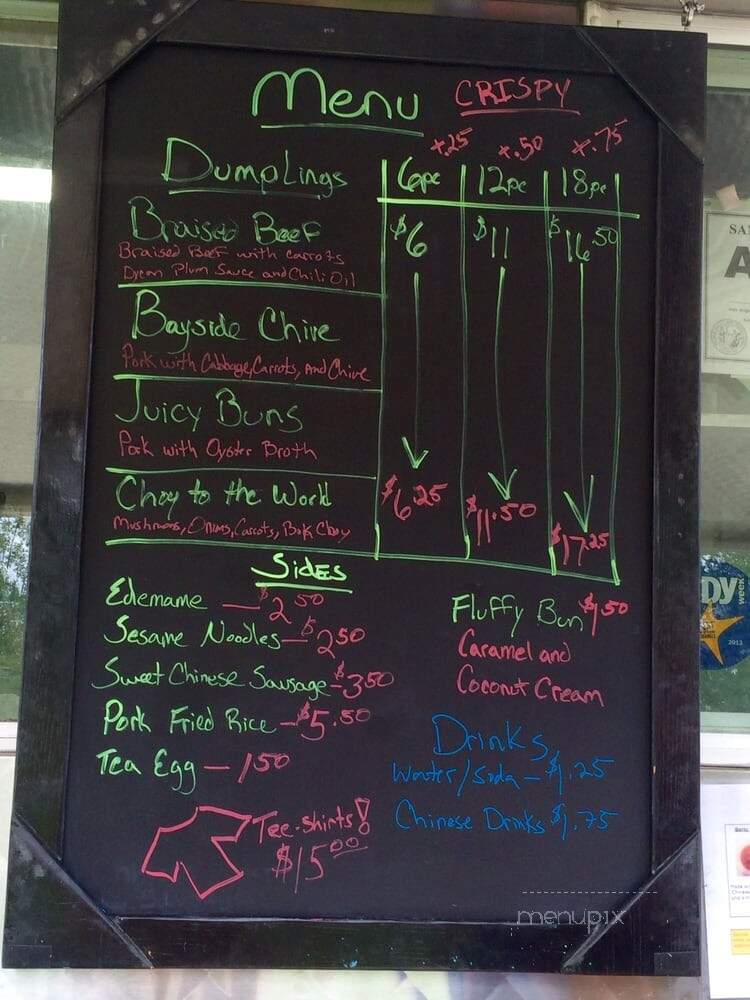 Menu CRISPY
+.25 +.50 +.75
Dumplings 6pc 12pc 18pc
Braised Beef $6 $11 $16.50
Braised Beef with carrots
Plum Sauce and Chili Oil
Bayside Chive
Pork with Cabbage, Carrots, And Chive
Juicy Buns
Pork with Oyster Broth
Choy to the World $6.25 $11.50 $17.25
Mushrooms, Onions, Carrots, Bok Choy
Sides
Edemame — $2.50
Sesame Noodles — $2.50
Sweet Chinese Sausage - $3.50
Pork Fried Rice - $5.50
Tea Egg — 1.50
Fluffy Bun $1.50
Caramel and
Coconut Cream
Drinks
Water/Soda — $1.25
Chinese Drinks $1.75
Tee-shirts!
$15.00
menupix
SAN
A
DY
week
2013